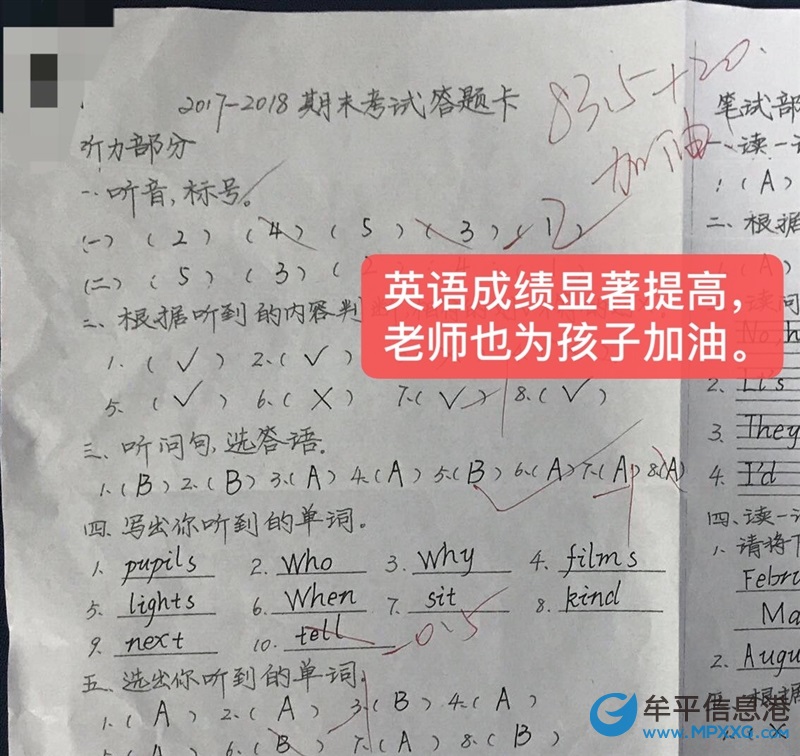 2017-2018期末考试答题卡
83.5+20.
加油
听力部分
一.听音,标号。
(一) (2) (4) (5) (3) (1)
(二) (5) (3)
英语成绩显著提高,
老师也为孩子加油。
二、根据听到的内容判
1.(√) 2.(√)
5.(√) 6.(×) 7.(√) 8.(√)
三、听问句,选答语.
1.(B) 2.(B) 3.(A) 4.(A) 5.(B) 6.(A) 7.(A) 8.(A)
四.写出你听到的单词。
1. pupils 2. Who 3. Why 4. films
5. lights 6. When 7. sit 8. kind
9. next 10. tell -0.5
五、选出你听到的单词.
1.(A) 2.(A) 3.(B) 4.(A)
5.(A) 6.(B) 7.(A) 8.(B)
笔试部
一、读一
1.(A)
二、根据
(A)
读问
No, h
2. It's
3. They
4. I'd
四、读一
1. 请将下
Febru
Ma
2. Augu
根据
×
牟平信息港
WWW.MPXXQ.COM